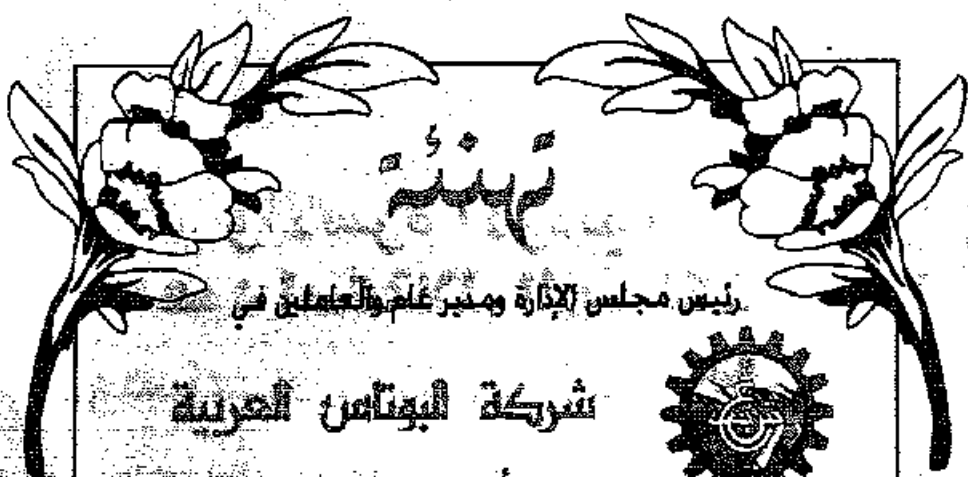 تهنئة
رئيس مجلس الإدارة ومدير عام والعاملين في
شركة البوتاس العربية